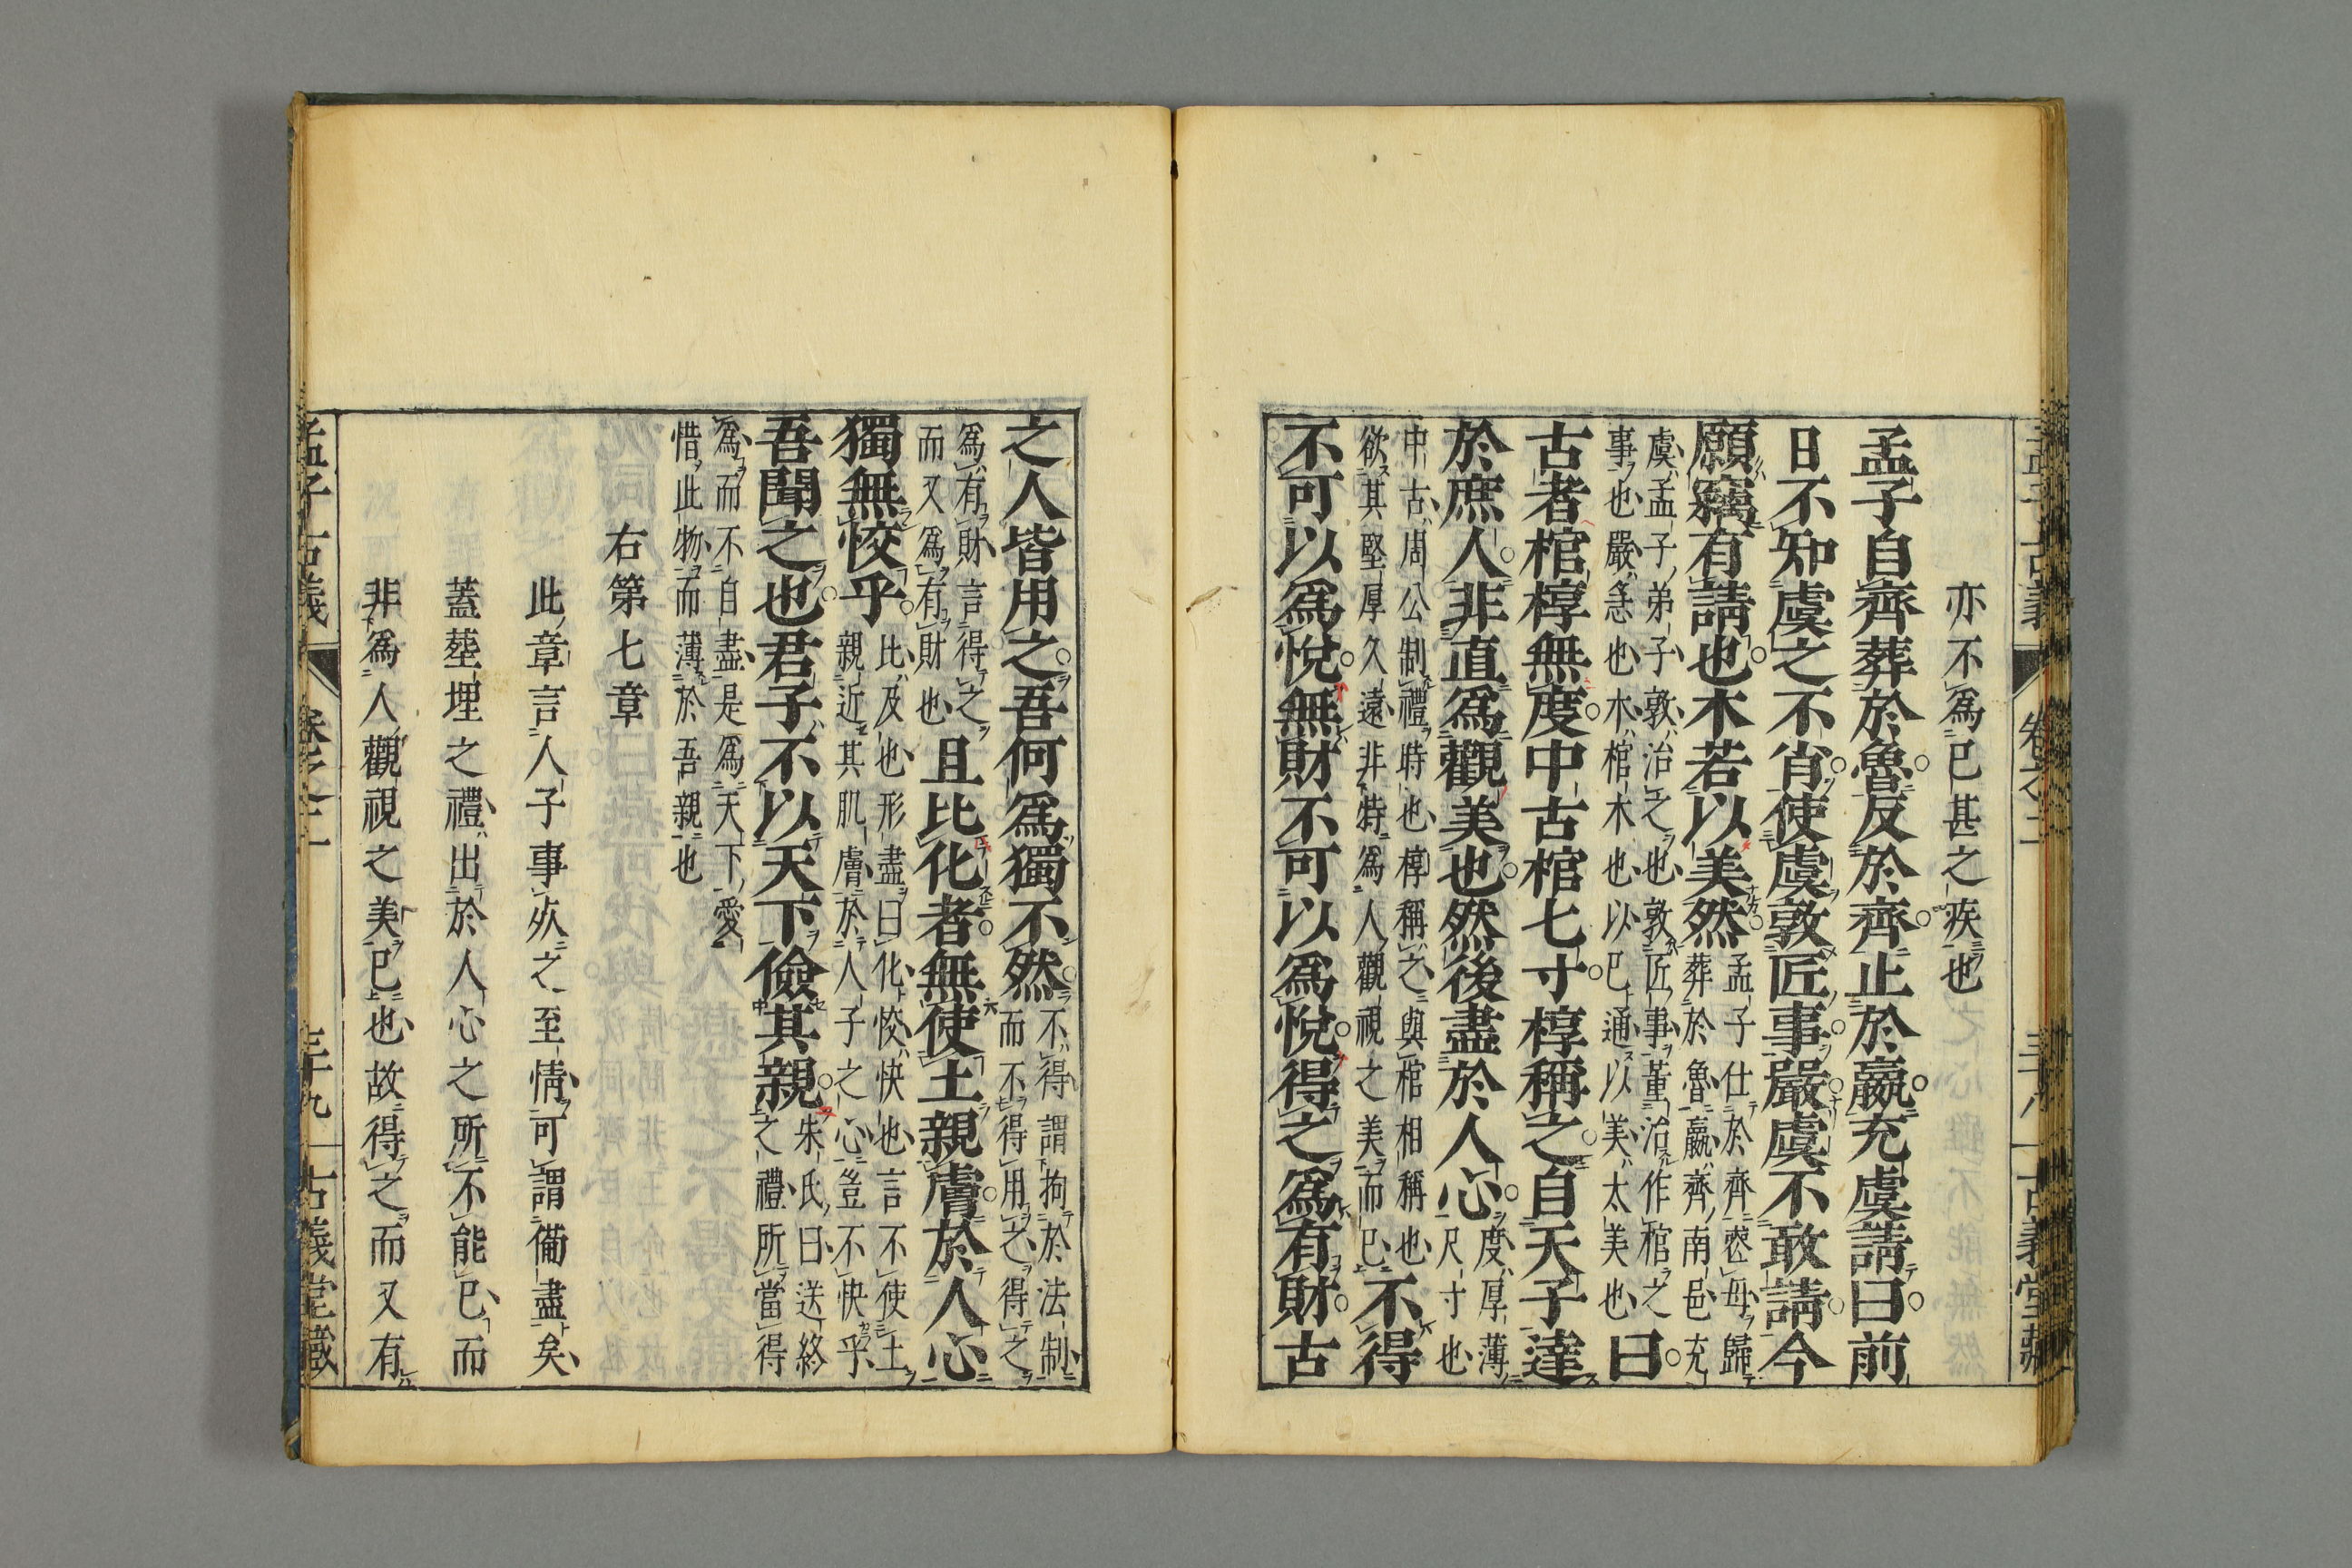 亦不爲已甚之疾也
孟子自齊葬於魯反於齊止於嬴充虞請曰前
日不知虞之不肖使虞敦匠事嚴虞不敢請今
願竊有請也木若以美然
孟子仕於齊喪母歸
葬於魯嬴齊南邑充
虞孟子弟子敦治之也敦匠事董治作棺之
事也嚴急也木棺木也以已通以美太美也
曰
古者棺椁無度中古棺七寸椁稱之自天子達
於庶人非直爲觀美也然後盡於人心
度厚薄
尺寸也
中古周公制禮時也椁稱之與棺相稱也
欲其堅厚久遠非特爲人觀視之美而已
不得
不可以爲悅無財不可以爲悅得之爲有財古
之人皆用之吾何爲獨不然
不得謂拘於法制
而不得用之得之
爲有財言得之
而又爲有財也
且比化者無使土親膚於人心
獨無恔乎
比及也形盡曰化恔快也言不使土
親近其肌膚於人子之心豈不快乎
吾聞之也君子不以天下儉其親
朱氏曰送終
之禮所當得
爲而不自盡是爲天下愛
惜此物而薄於吾親也
右第七章
此章言人子事死之至情可謂備盡矣
蓋塟埋之禮出於人心之所不能已而
非爲人觀視之美已也故得之而又有
孟子古義
卷之二
三十八
古義堂藏
孟子古義
卷之二
三十九
古義堂藏